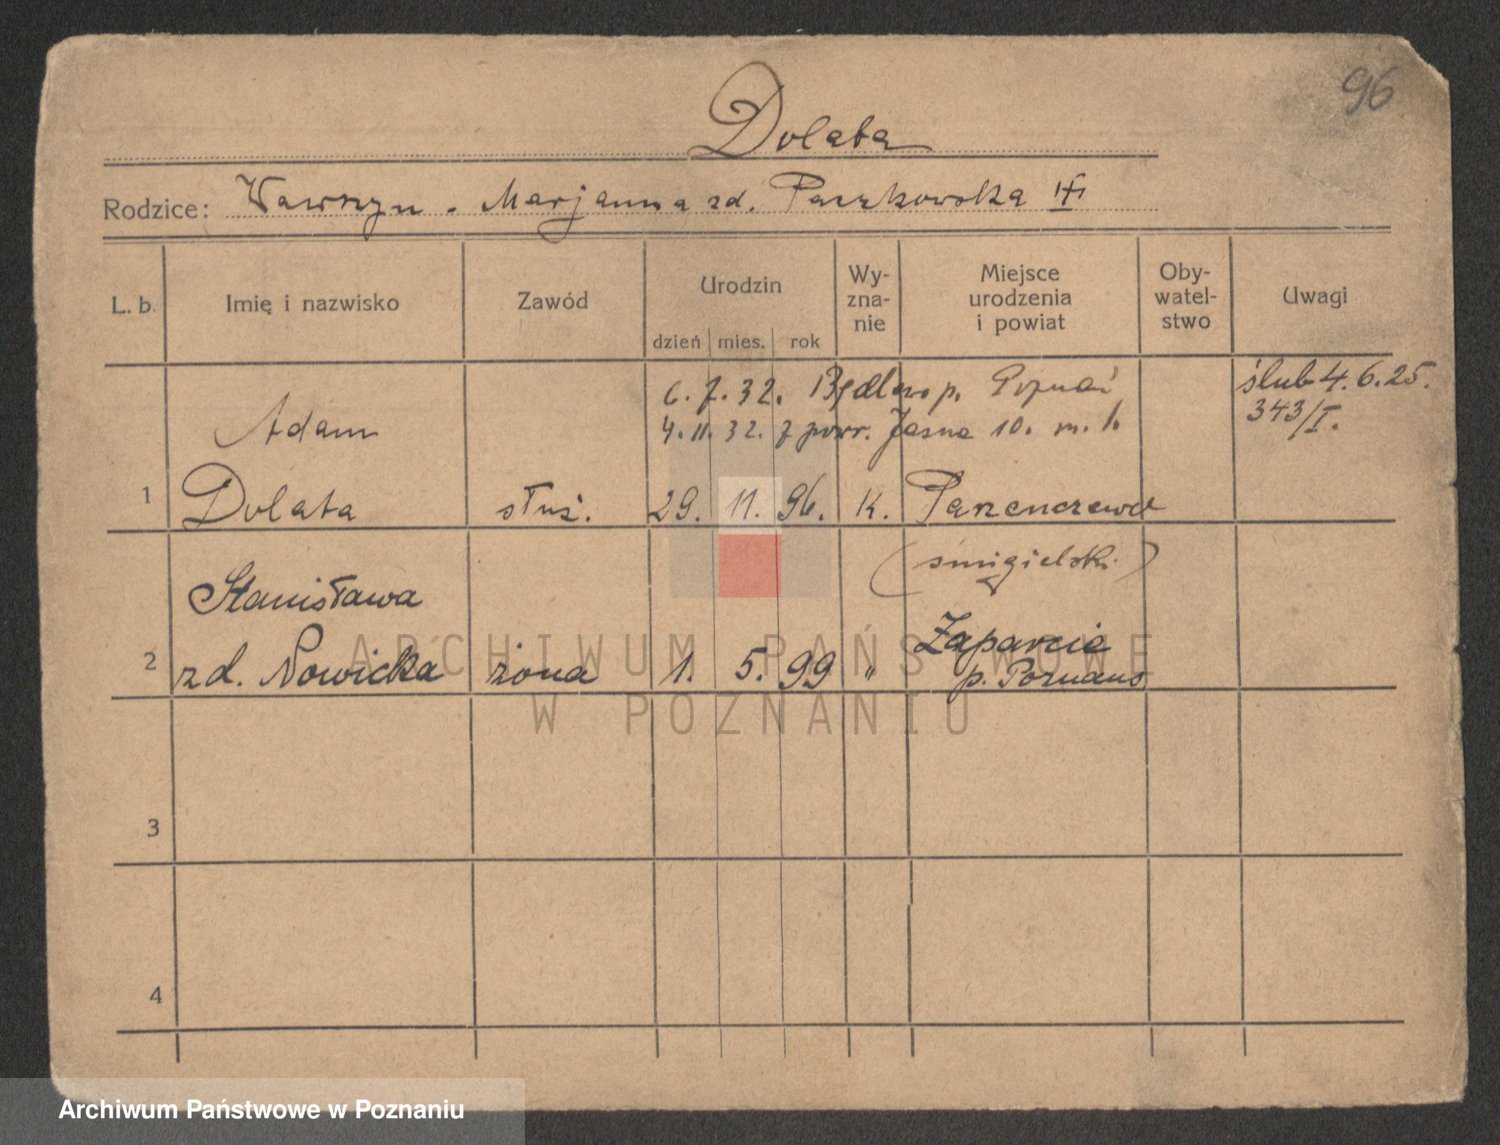 96
Dolata
Rodzice: Wawrzyn - Marjanna zd. Paszkowska
L. b. Imię i nazwisko Zawód Urodzin dzień mies. rok Wy-zna-nie Miejsce urodzenia i powiat Oby-watel-stwo Uwagi
6. 7. 32. Będlewo p. Poznań ślub 4. 6. 25.
Adam 4. 11. 32. z powr. Jasna 10. m. 343/I.
1 Dolata służ. 29. 11. 96. K. Parzenczewo
(śmigielski)
Stanisława
2 zd. Nowicka żona 1. 5. 99 " p. Poznans
3
4
ARCHIWUM PAŃSTWOWE
W POZNANIU
Archiwum Państwowe w Poznaniu